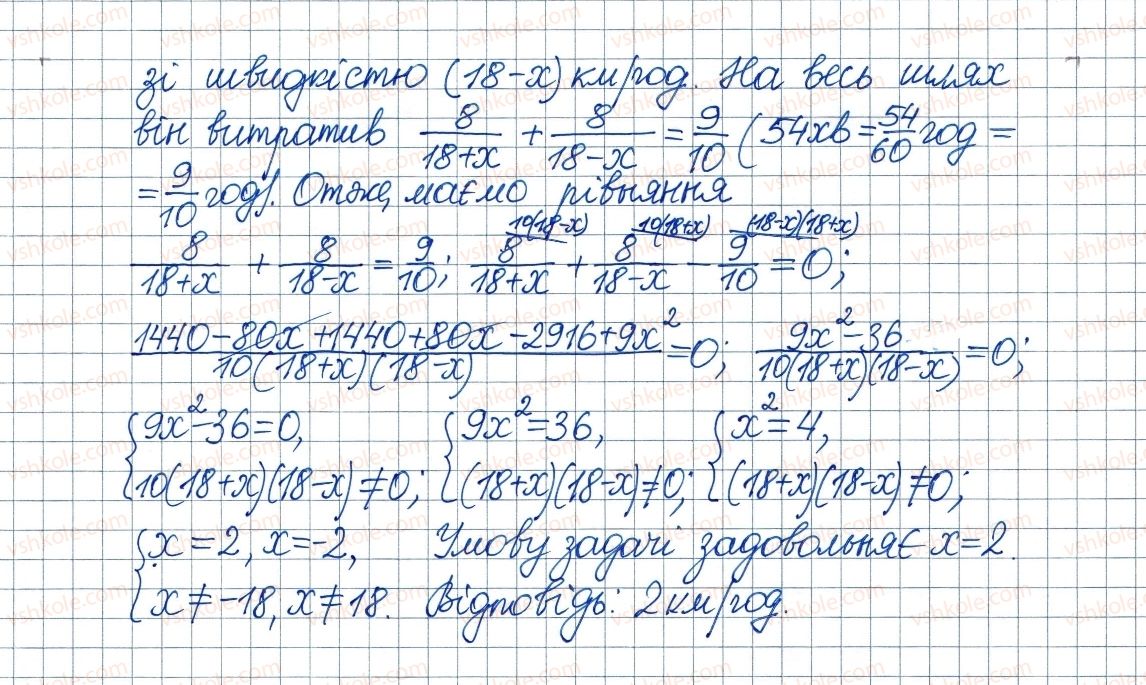 зі швидкістю (18-x) км/год. На весь шлях
він витратив 8/(18+x) + 8/(18-x) = 9/10 (54хв = 54/60 год =
= 9/10 год). Отже, маємо рівняння
8/(18+x) + 8/(18-x) = 9/10; 8/(18+x) ^10(18-x) + 8/(18-x) ^10(18+x) - 9/10 ^(18-x)(18+x) = 0;
(1440-80x+1440+80x-2916+9x²)/(10(18+x)(18-x)) = 0; (9x²-36)/(10(18+x)(18-x)) = 0;
{9x²-36=0, {9x²=36, {x²=4,
10(18+x)(18-x)≠0; (18+x)(18-x)≠0; (18+x)(18-x)≠0;
{x=2, x=-2, Умову задачі задовольняє x=2.
x≠-18, x≠18. Відповідь: 2км/год.